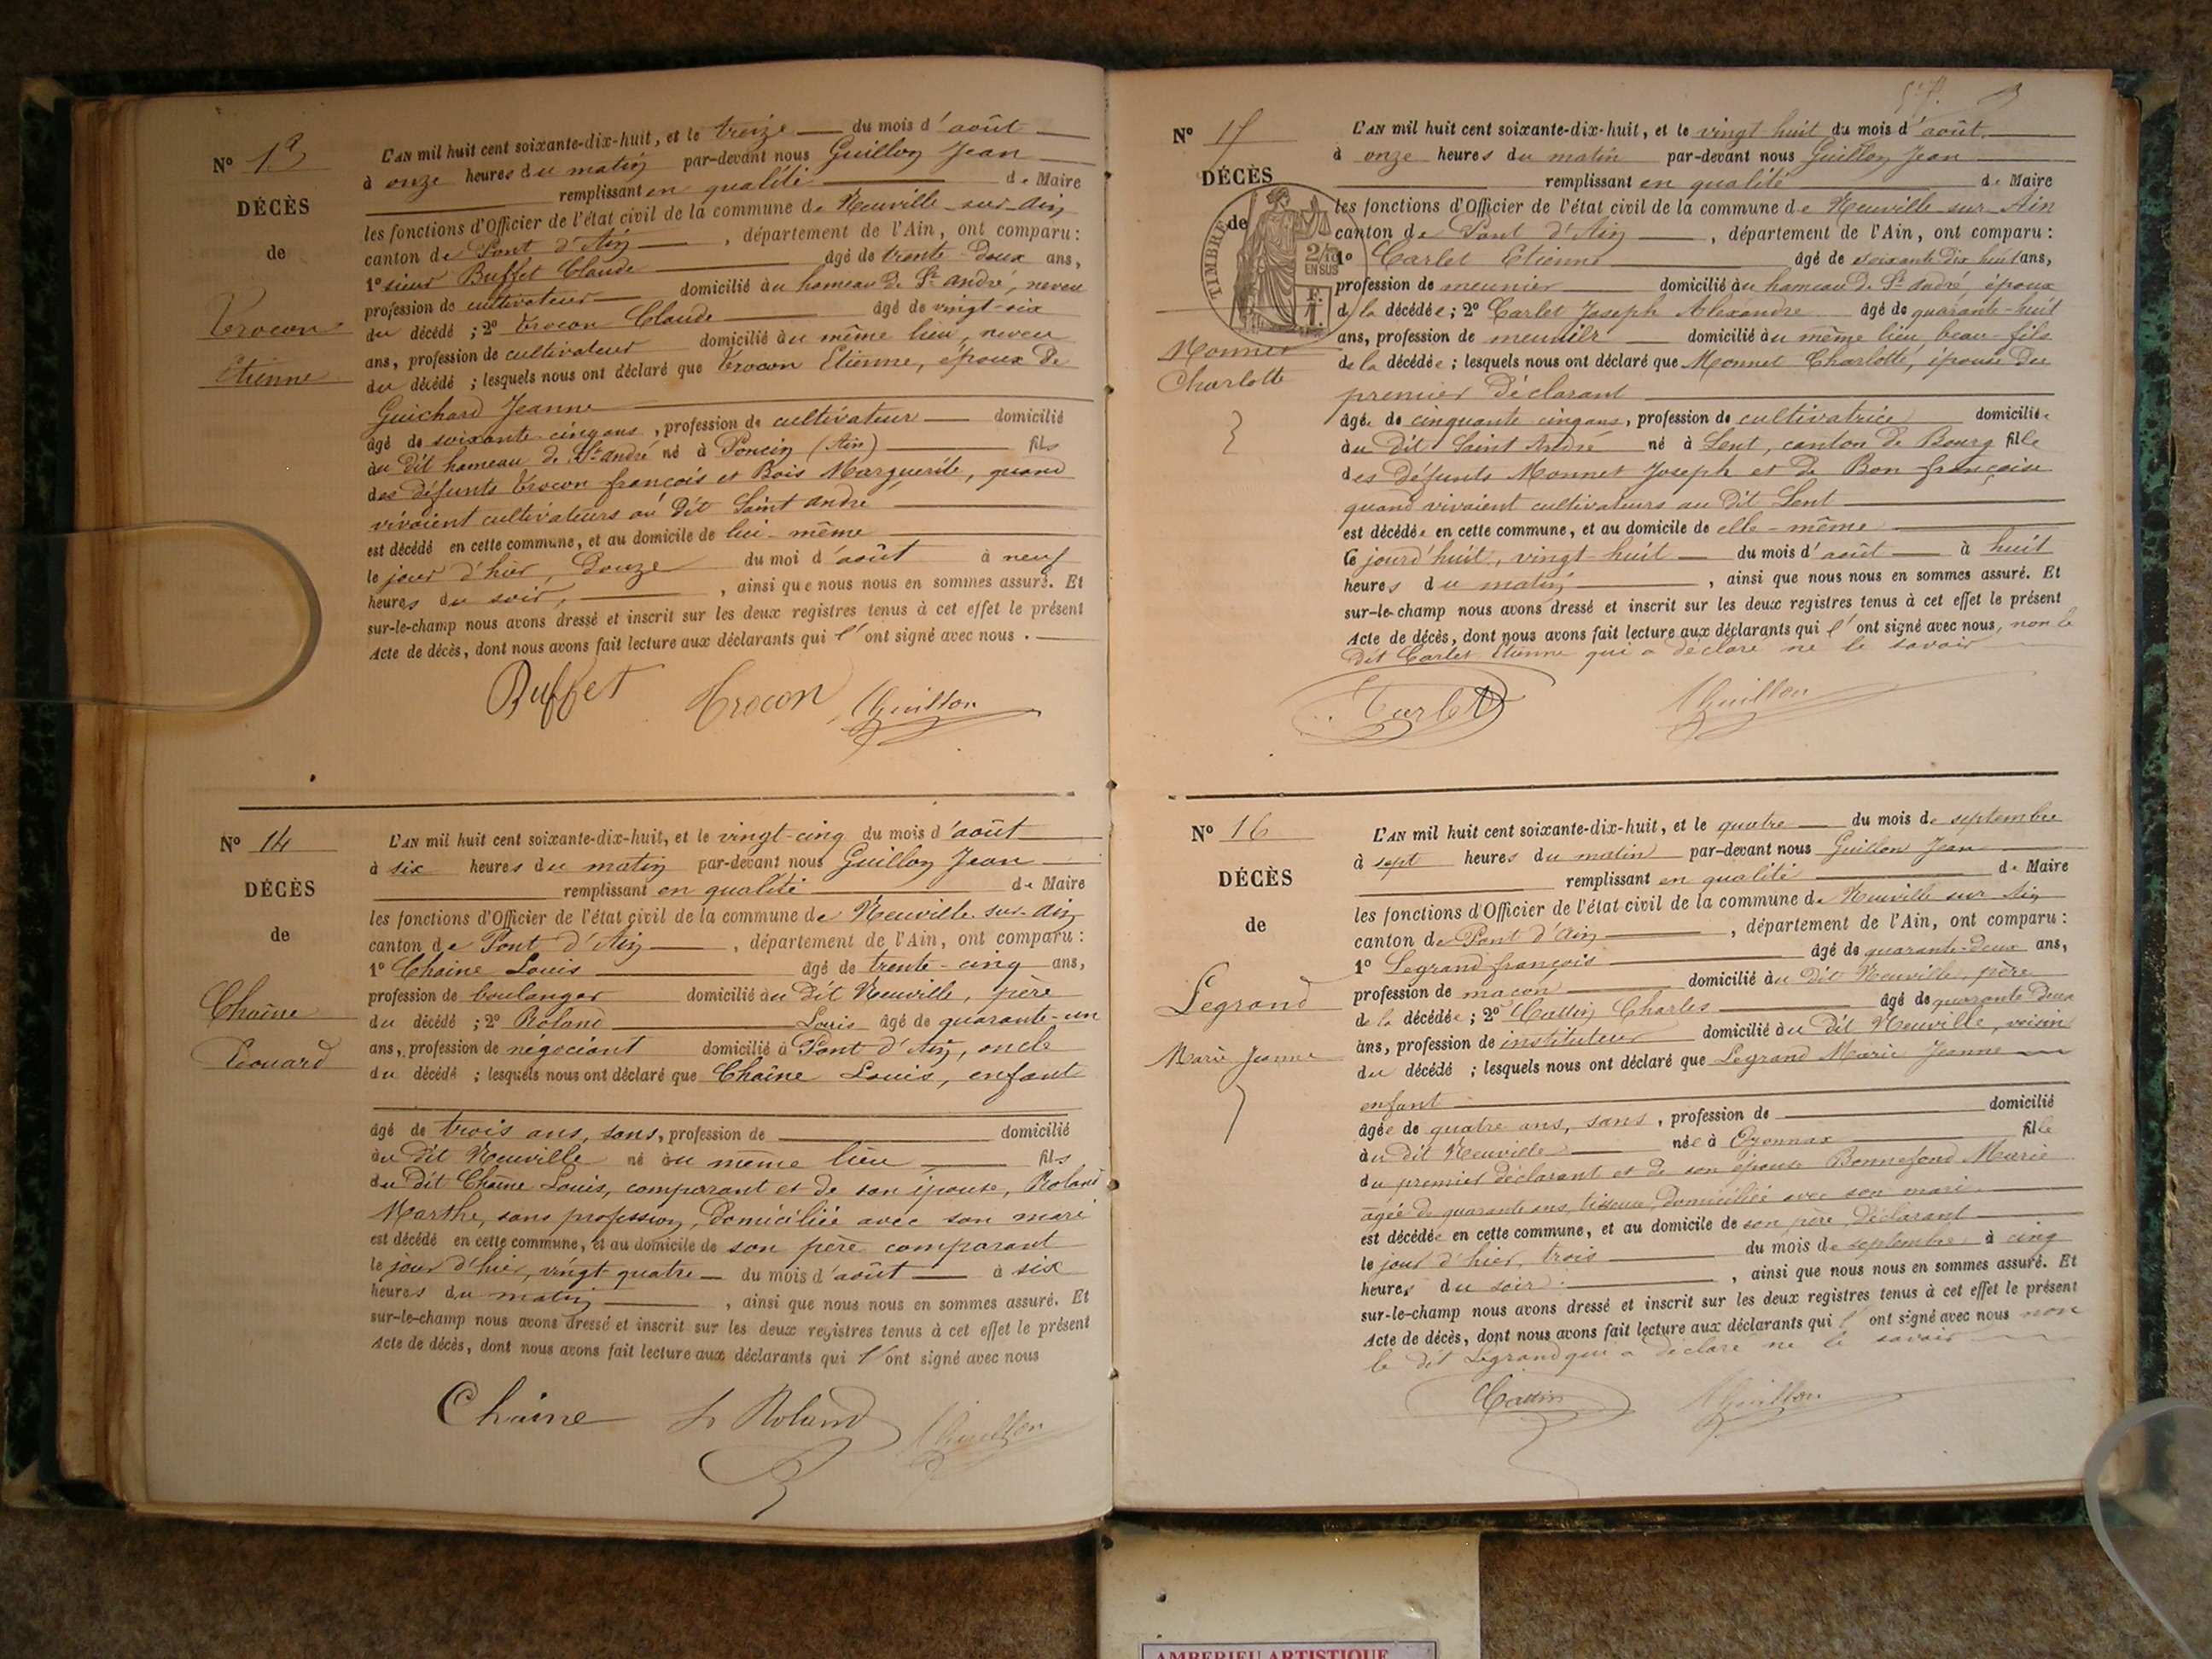 N° 13
DÉCÈS
de
Trocon
Etienne
L'AN mil huit cent soixante-dix-huit, et le treize du mois d'août
à onze heures du matin par-devant nous Guillon Jean
remplissant en qualité de Maire
les fonctions d'Officier de l'état civil de la commune de Neuville-sur-Ain
canton de Pont d'Ain, département de l'Ain, ont comparu:
1° sieur Buffet Claude âgé de trente-deux ans,
profession de cultivateur domicilié au hameau de St André, neveu
du décédé; 2° Trocon Claude âgé de vingt-six
ans, profession de cultivateur domicilié au même lieu, neveu
du décédé; lesquels nous ont déclaré que Trocon Etienne, époux de
Guichard Jeanne
âgé de soixante-cinq ans, profession de cultivateur domicilié
au dit hameau de St André né à Poncin (Ain) fils
des défunts Trocon françois et Bois Marguerite, quand
vivaient cultivateurs au dit Saint André
est décédé en cette commune, et au domicile de lui-même
le jour d'hier, douze du moi d'août à neuf
heures du soir, ainsi que nous nous en sommes assuré. Et
sur-le-champ nous avons dressé et inscrit sur les deux registres tenus à cet effet le présent
Acte de décès, dont nous avons fait lecture aux déclarants qui l'ont signé avec nous.
Buffet Trocon Guillon
N° 14
DÉCÈS
de
Chaîne
Edouard
L'AN mil huit cent soixante-dix-huit, et le vingt-cinq du mois d'août
à six heures du matin par-devant nous Guillon Jean
remplissant en qualité de Maire
les fonctions d'Officier de l'état civil de la commune de Neuville-sur-Ain
canton de Pont d'Ain, département de l'Ain, ont comparu:
1° Chaîne Louis âgé de trente-cinq ans,
profession de boulanger domicilié au dit Neuville, père
du décédé; 2° Roland Louis âgé de quarante-un
ans, profession de négociant domicilié à Pont d'Ain, oncle
du décédé; lesquels nous ont déclaré que Chaîne Louis, enfant
âgé de trois ans, sans, profession de domicilié
au dit Neuville né au même lieu fils
du dit Chaîne Louis, comparant et de son épouse, Roland
Marthe, sans profession, domiciliée avec son mari
est décédé en cette commune, et au domicile de son père comparant
le jour d'hier, vingt-quatre du mois d'août à six
heures du matin, ainsi que nous nous en sommes assuré. Et
sur-le-champ nous avons dressé et inscrit sur les deux registres tenus à cet effet le présent
Acte de décès, dont nous avons fait lecture aux déclarants qui l'ont signé avec nous
Chaine L Roland Guillon
N° 15
DÉCÈS
de
TIMBRE
2/10
EN SUS
Monnet
Charlotte
L'AN mil huit cent soixante-dix-huit, et le vingt huit du mois d'août
à onze heures du matin par-devant nous Guillon Jean
remplissant en qualité de Maire
les fonctions d'Officier de l'état civil de la commune de Neuville sur Ain
canton de Pont d'Ain, département de l'Ain, ont comparu:
1° Carlet Etienne âgé de soixante dix huit ans,
profession de meunier domicilié au hameau de St André, époux
de la décédée; 2° Carlet Joseph Alexandre âgé de quarante-huit
ans, profession de meunier domicilié au même lieu, beau-fils
de la décédée; lesquels nous ont déclaré que Monnet Charlotte, épouse du
premier déclarant
âgée de cinquante cinq ans, profession de cultivatrice domiciliée
au dit Saint André né à Lent, canton de Bourg fille
des défunts Monnet Joseph et de Bon françoise
quand vivaient cultivateurs au dit Lent
est décédée en cette commune, et au domicile de elle-même
ce jourd'huit, vingt-huit du mois d'août à huit
heures du matin, ainsi que nous nous en sommes assuré. Et
sur-le-champ nous avons dressé et inscrit sur les deux registres tenus à cet effet le présent
Acte de décès, dont nous avons fait lecture aux déclarants qui l'ont signé avec nous, non le
dit Carlet Etienne qui a déclaré ne le savoir
Carlet Guillon
N° 16
DÉCÈS
de
Legrand
Marie Jeanne
L'AN mil huit cent soixante-dix-huit, et le quatre du mois de septembre
à sept heures du matin par-devant nous Guillon Jean
remplissant en qualité de Maire
les fonctions d'Officier de l'état civil de la commune de Neuville sur Ain
canton de Pont d'Ain, département de l'Ain, ont comparu:
1° Legrand françois âgé de quarante-deux ans,
profession de maçon domicilié au dit Neuville, père
de la décédée; 2° Cattin Charles âgé de quarante deux
ans, profession de instituteur domicilié au dit Neuville, voisin
du décédé; lesquels nous ont déclaré que Legrand Marie Jeanne
enfant
âgée de quatre ans, sans, profession de domicilié
au dit Neuville née à Oyonnax fille
du premier déclarant et de son épouse Bonnefond Marie
âgée de quarante ans, tiseuse, domiciliée avec son mari
est décédée en cette commune, et au domicile de son père, déclarant
le jour d'hier, trois du mois de septembre à cinq
heures du soir, ainsi que nous nous en sommes assuré. Et
sur-le-champ nous avons dressé et inscrit sur les deux registres tenus à cet effet le présent
Acte de décès, dont nous avons fait lecture aux déclarants qui l'ont signé avec nous non
le dit Legrand qui a déclaré ne le savoir
Cattin Guillon
AMBERIEU ARTISTIQUE